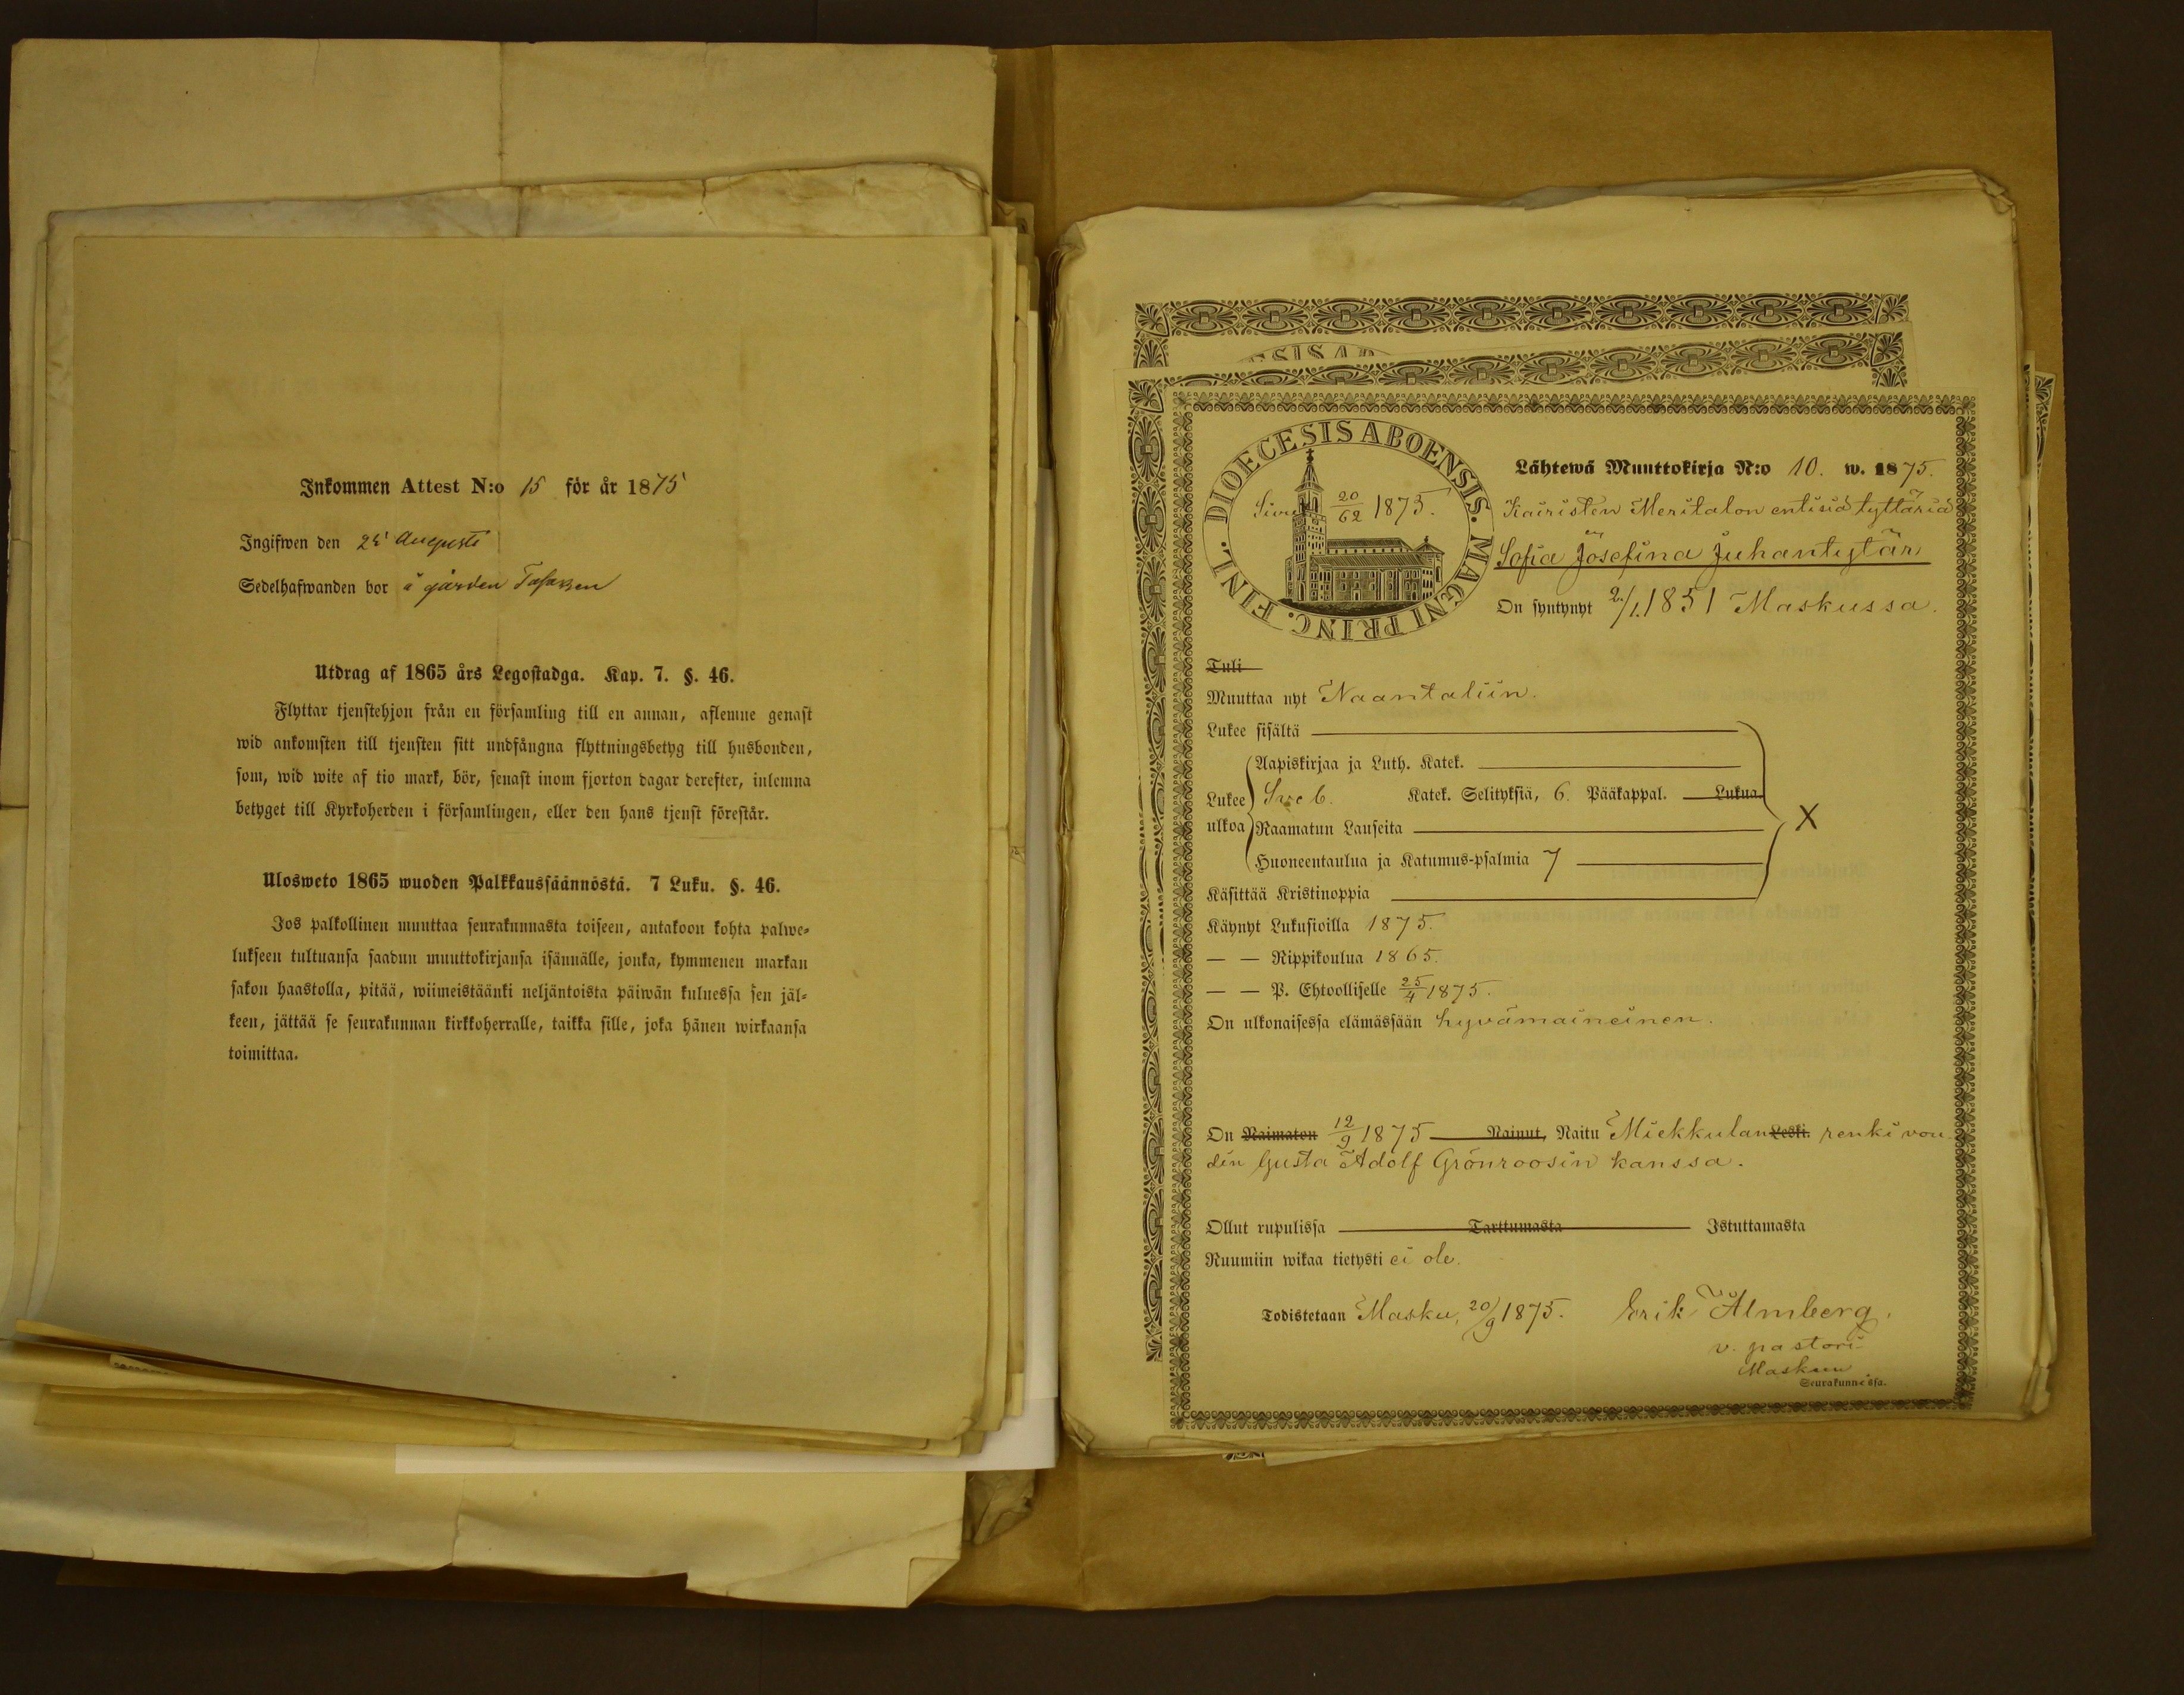 Inkommen Attest N:o 15 för år 1875
Ingifwen den 25 Augusti
Sedelhafwanden bor å gården
Utdrag af 1865 års Legostadga. Kap. 7. §. 46.
Flyttar tjenstehjon från en församling till en annan, aflemne genast
wid ankomsten till tjensten sitt undfångna flyttningsbetyg till husbonden,
som, wid wite af tio mark, bör, senast inom fjorton dagar derefter, inlemna
betyget till Kyrkoherden i församlingen, eller den hans tjenst förestår.
Ulosweto 1865 wuoden Palkkaussäännöstä. 7 Luku. §. 46.
Jos palkollinen muuttaa seurakunnasta toiseen, antakoon kohta palwe-
lukseen tultuansa saadun muuttokirjansa isännälle, jonka, kymmenen markan
sakon haastolla, pitää, wiimeistäänki neljäntoista päiwän kuluessa sen jäl-
keen, jättää se seurakunnan kirkkoherralle, taikka sille, joka hänen wirkaansa
toimittaa.
DIOECESIS ABOENSIS. MAGNI PRINC. FINL.
Sivu 20/62 1875.
Lähtewä Muuttokirja N:o 10. w. 1875.
Kairisten Meritalon entisiä tyttäriä
Sofia Josefina Juhantytär
On syntynyt 2/1. 1851 Maskussa.
Tuli
Muuttaa nyt Naantaliin.
Lukee sisältä
Aapiskirjaa ja Luth. Katek.
Lukee ulkoa
Katek. Selityksiä, 6. Pääkappal. Lukua
X
Raamatun Lauseita
Huoneentaulua ja Katumus-psalmia 7
Käsittää Kristinoppia
Käynyt Lukusioilla 1875.
— — Rippikoulua 1865.
— — P. Ehtoolliselle 25/4 1875.
On ulkonaisessa elämässään hyvämaineinen.
On Naimaton 12/9 1875 Nainut, Naitu Miekkulan Leski. renki vou-
din Gusta Adolf Grönroosin kanssa.
Ollut rupulissa Tarttumasta Istuttamasta
Ruumiin wikaa tietysti ei ole.
Todistetaan Masku, 20/9 1875. Erik Almberg.
v. pastori
Maskun
Seurakunnassa.